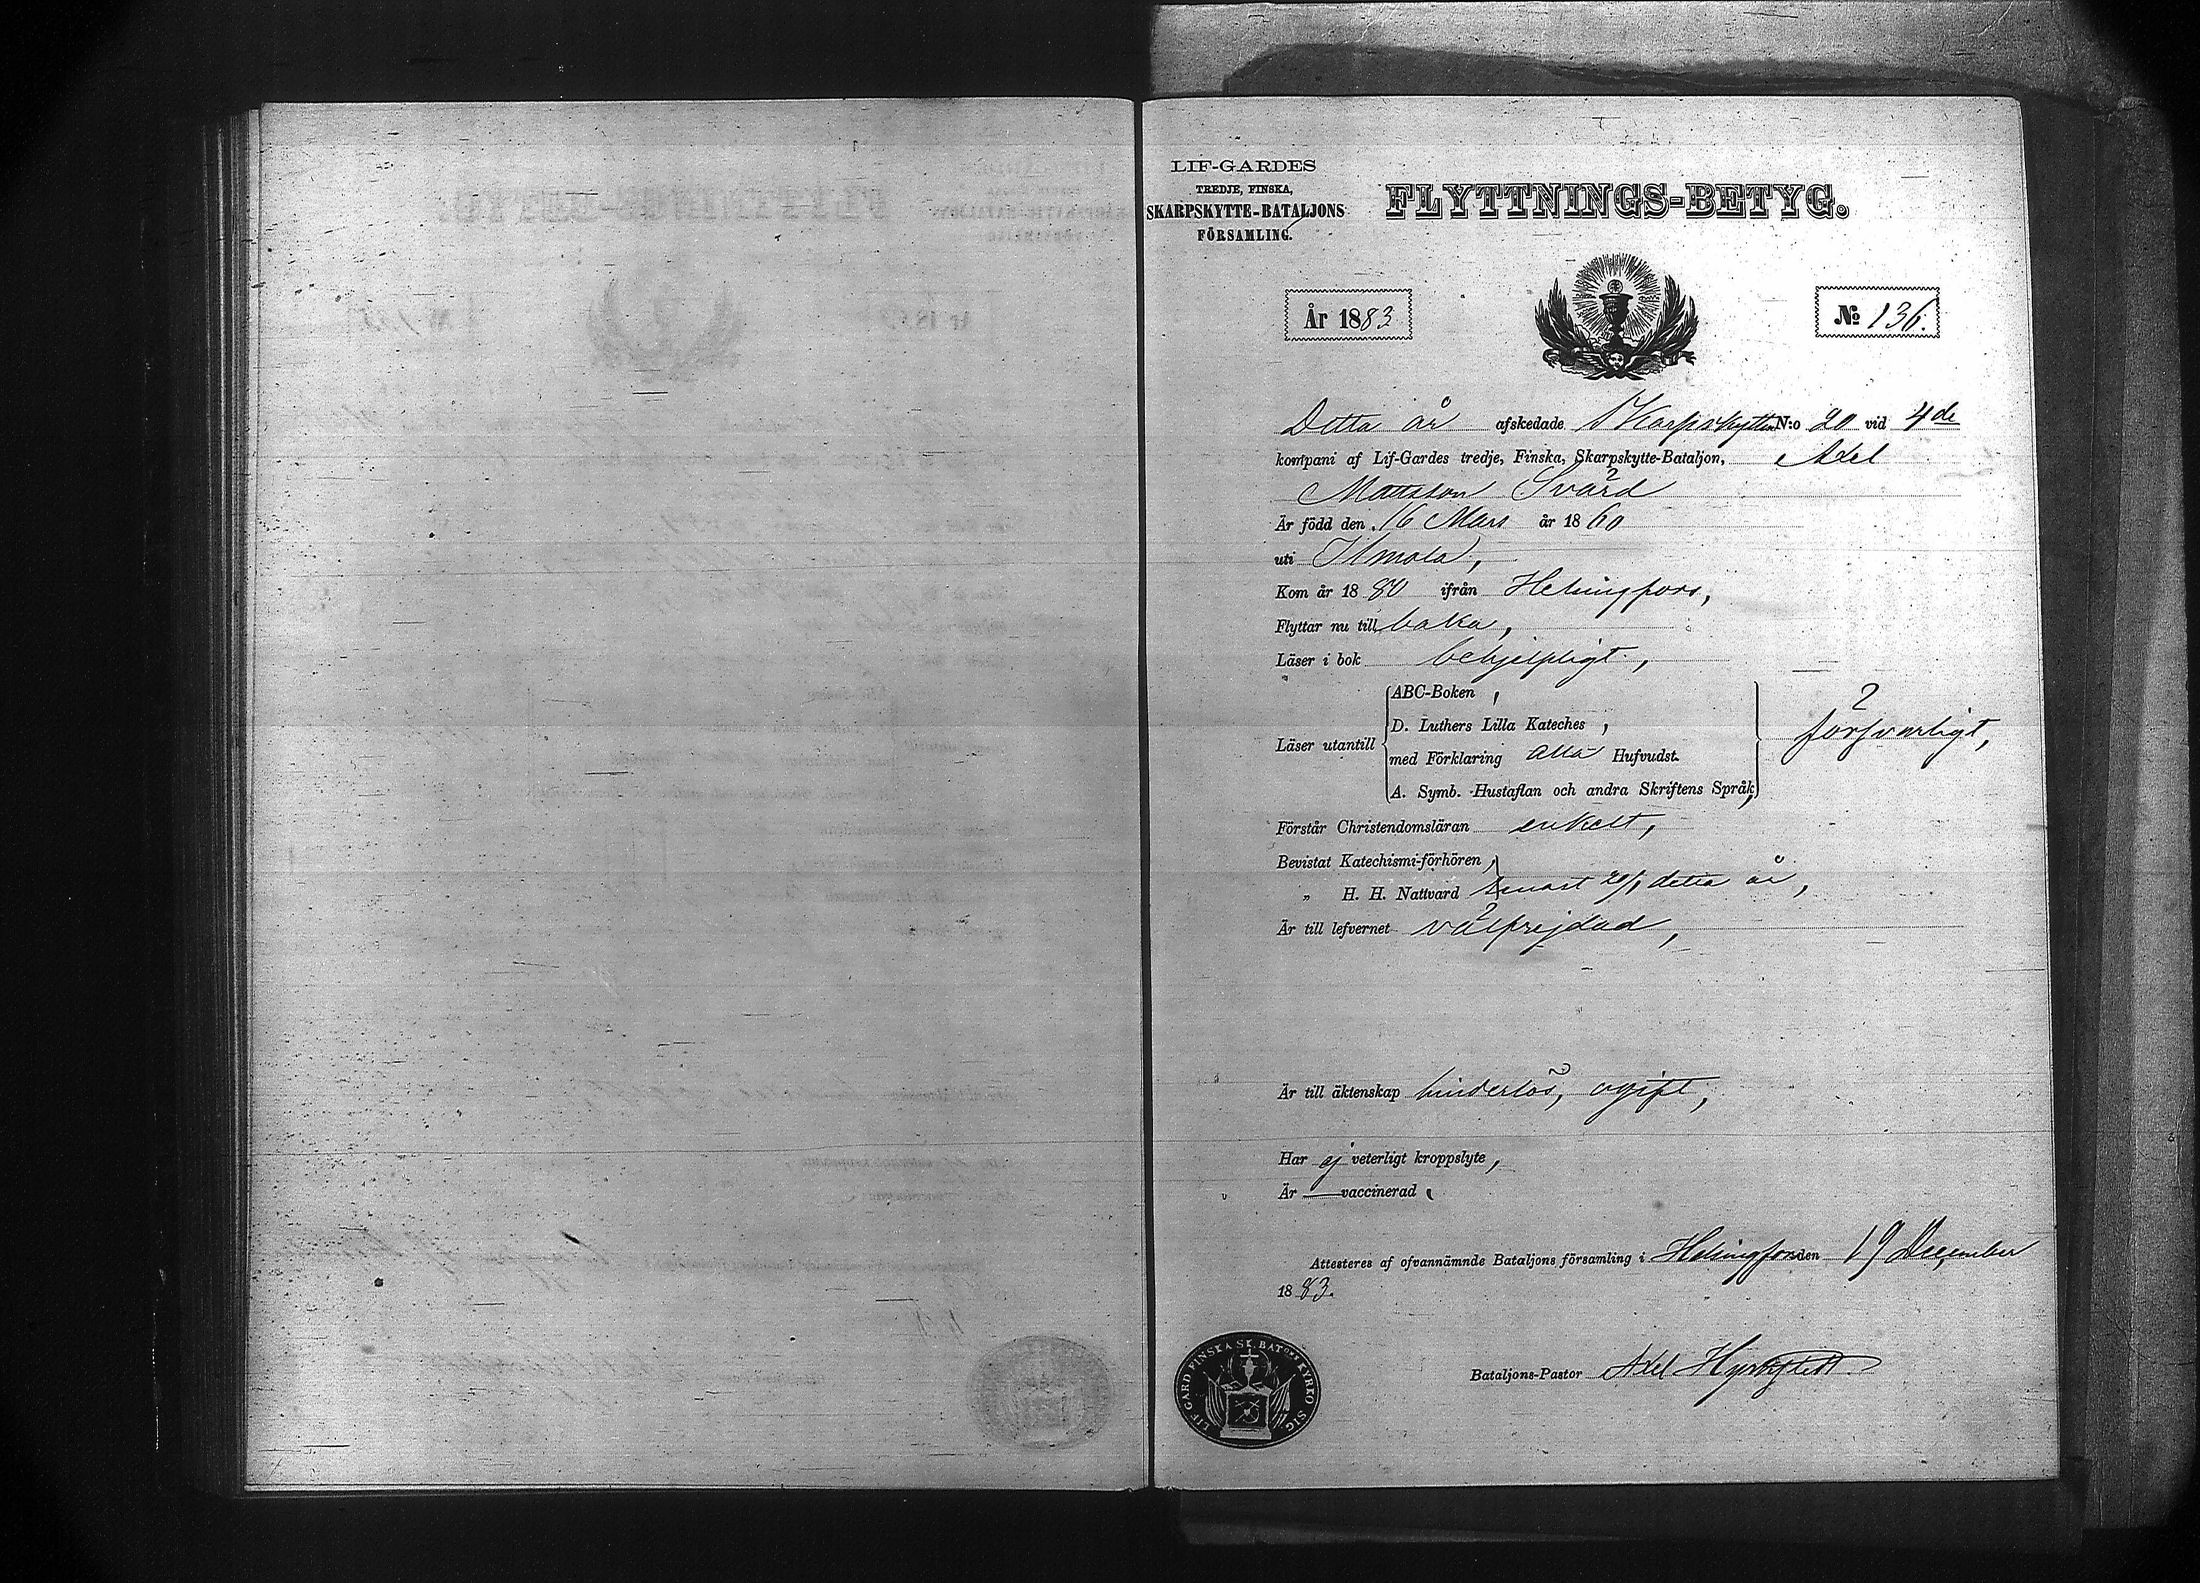 LIF-GARDES
TREDJE, FINSKA,
SKARPSKYTTE-BATALJONS
FÖRSAMLING.
FLYTTNINGS-BETYG.
År 1883
№ 136.
Detta år afskedade Skarpskytten N:o 20 vid 4de
kompani af Lif-Gardes tredje, Finska, Skarpskytte-Bataljon, Axel
Mattsson Svärd
Är född den 16 Mars år 1860
uti Ilmola,
Kom år 1880 ifrån Helsingfors,
Flyttar nu till baka,
Läser i bok behjelpligt,
Läser utantill
ABC-Boken,
D. Luthers Lilla Kateches,
med Förklaring alla Hufvudst.
A. Symb. Hustaflan och andra Skriftens Språk,
försvarligt,
Förstår Christendomsläran enkelt,
Bevistat Katechismi-förhören,
„ H. H. Nattvard senast 20/1 detta år,
Är till lefvernet välfrejdad,
Är till äktenskap hinderlös, ogift,
Har ej veterligt kroppslyte,
Är — vaccinerad,
Attesteres af ofvannämnde Bataljons församling i Helsingfors den 19 December
1883.
Bataljons-Pastor Axel
LIF GARD FINSKA SK. BATons KYRKO SIG.